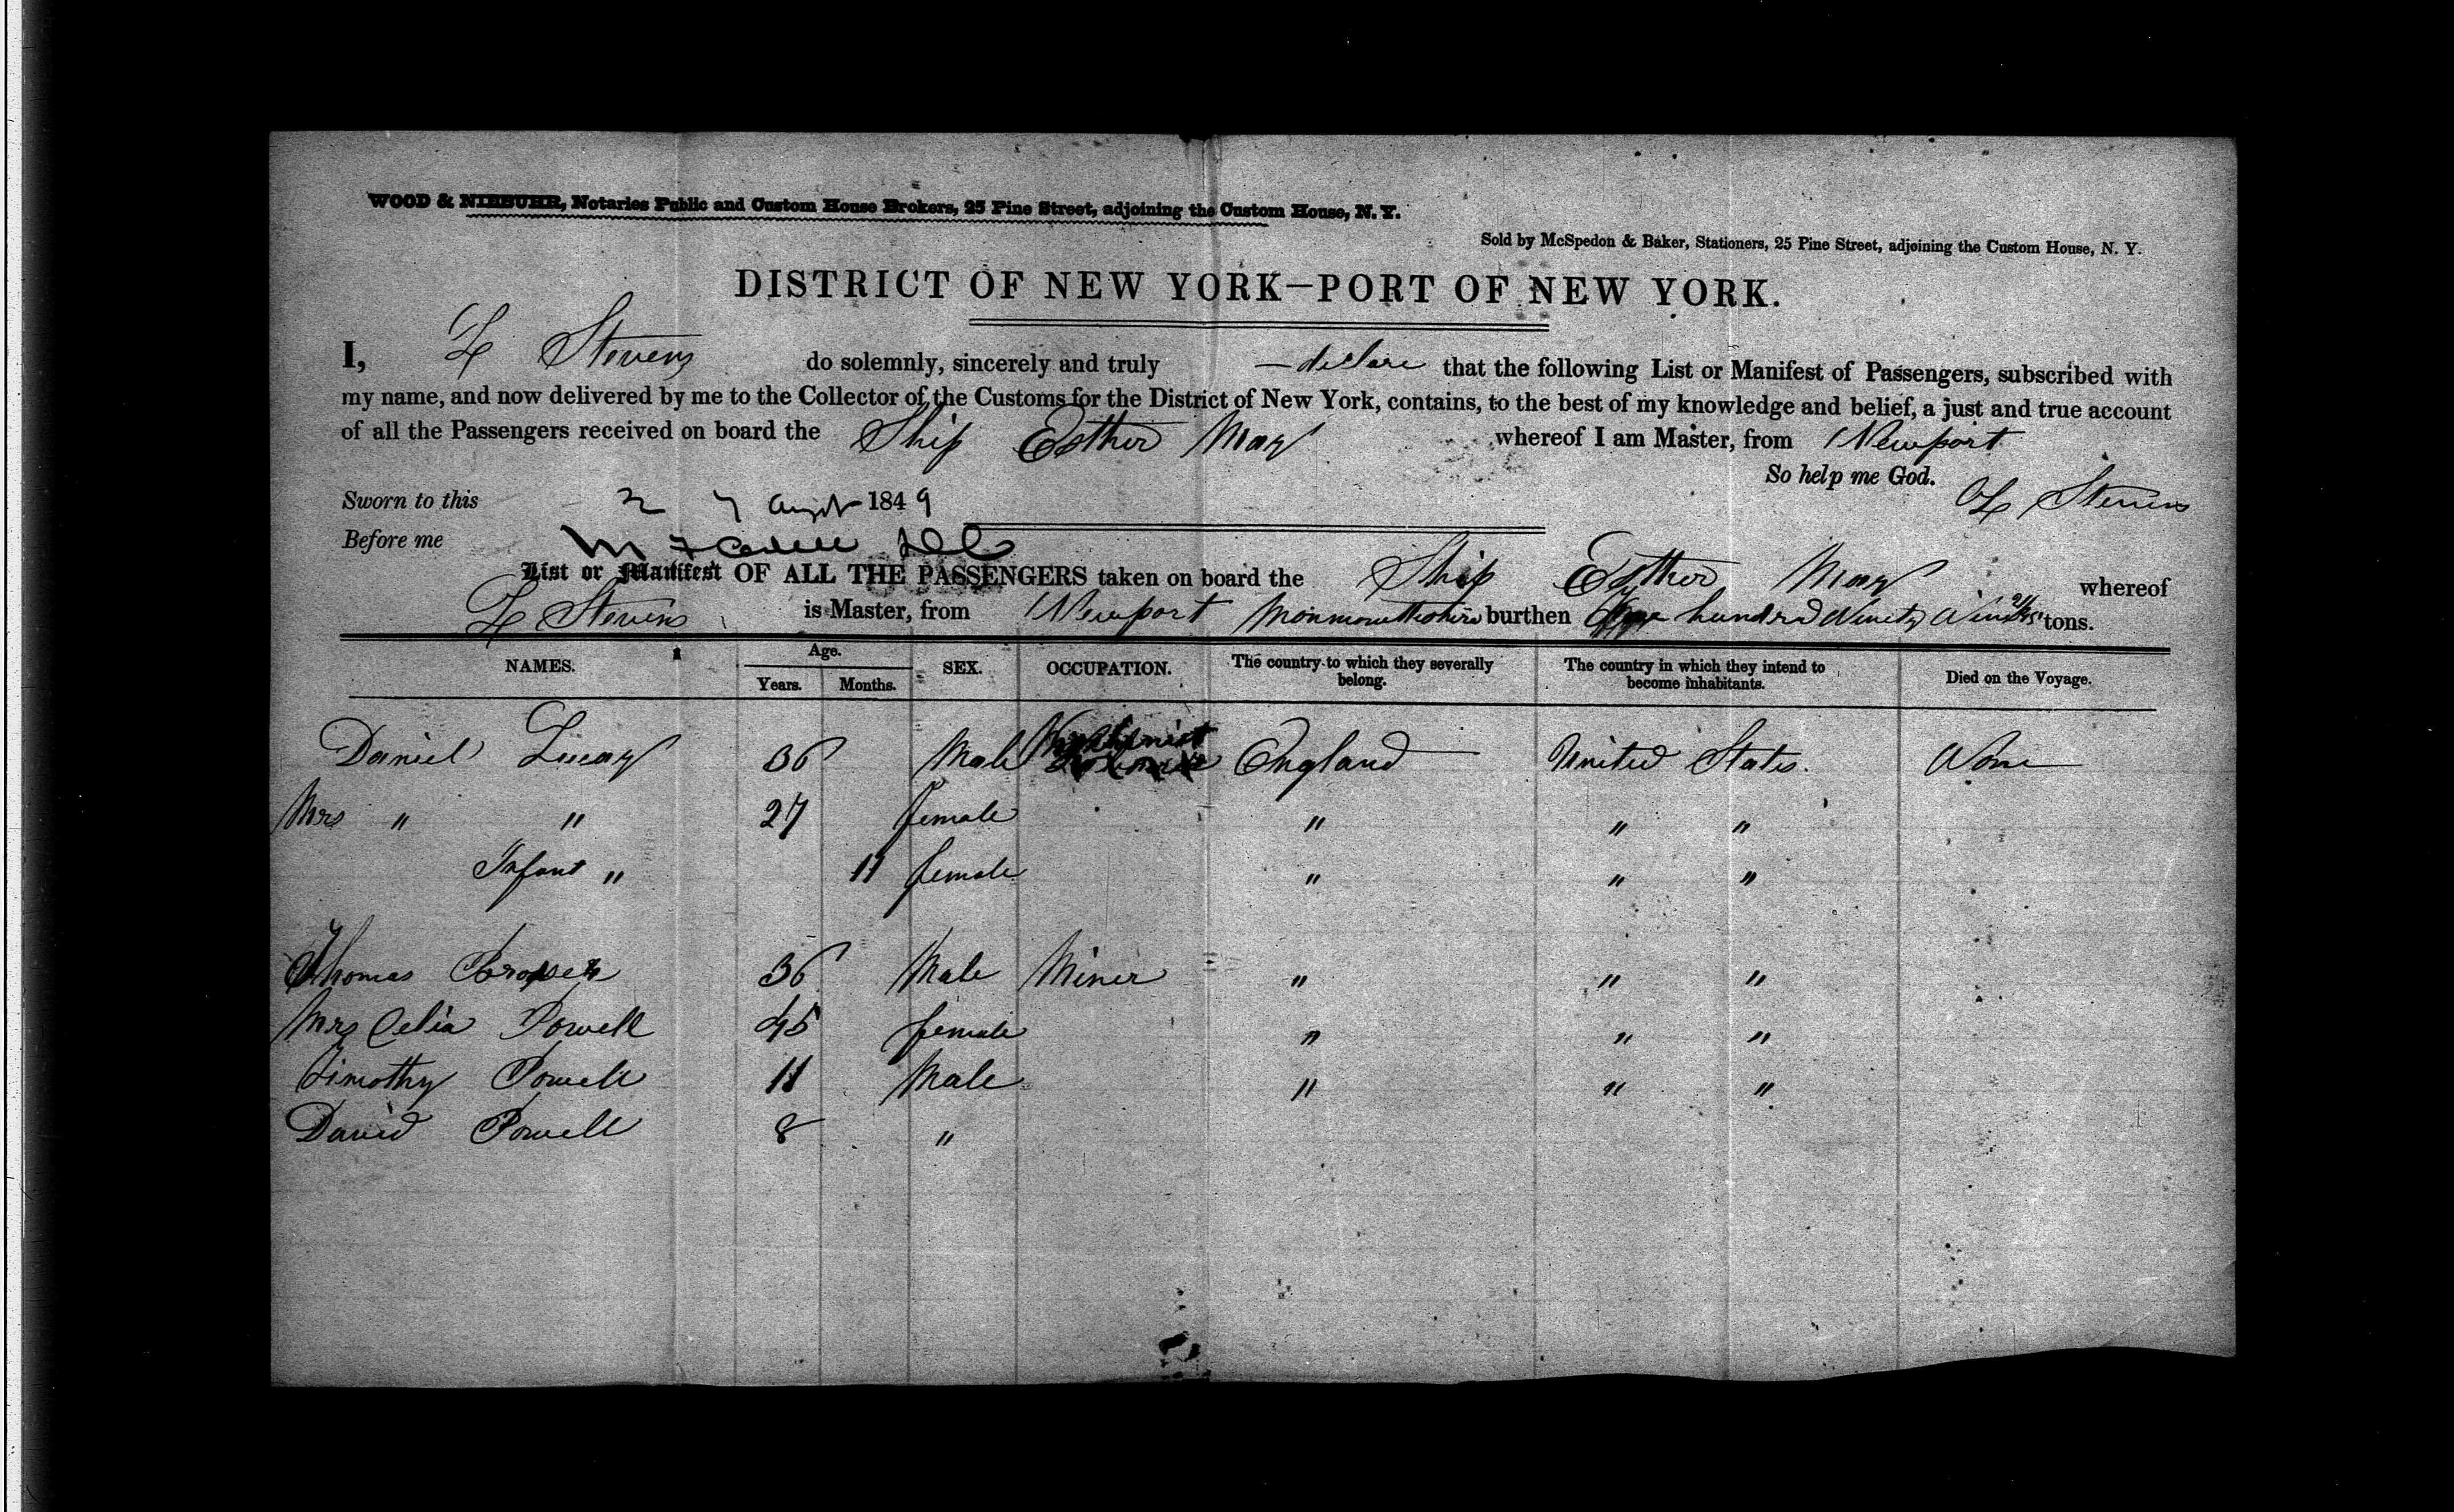 WOOD & NIEBUHR, Notaries Public and Custom House Brokers, 25 Pine Street, adjoining the Custom House, N. Y.
Sold by McSpedon & Baker, Stationers, 25 Pine Street, adjoining the Custom House, N. Y.
DISTRICT OF NEW YORK—PORT OF NEW YORK.
I, Stevens do solemnly, sincerely and truly declare that the following List or Manifest of Passengers, subscribed with
my name, and now delivered by me to the Collector of the Customs for the District of New York, contains, to the best of my knowledge and belief, a just and true account
of all the Passengers received on board the Ship Esther May whereof I am Master, from Newport
So help me God.
Sworn to this 27 1849 Stevens
Before me
List or Manifest OF ALL THE PASSENGERS taken on board the Ship Esther May whereof
Stevens is Master, from Newport Monmouthshire burthen hundred Ninety tons.
NAMES. Age. Years. Months. SEX. OCCUPATION. The country to which they severally belong. The country in which they intend to become inhabitants. Died on the Voyage.
Daniel 36 Male England United States. None
Mrs " " 27 female " " "
Infant " 11 female " " "
Thomas 36 Male Miner " " "
Mrs Celia Powell 45 female " " "
Timothy Powell 11 Male " " "
David Powell 8 "